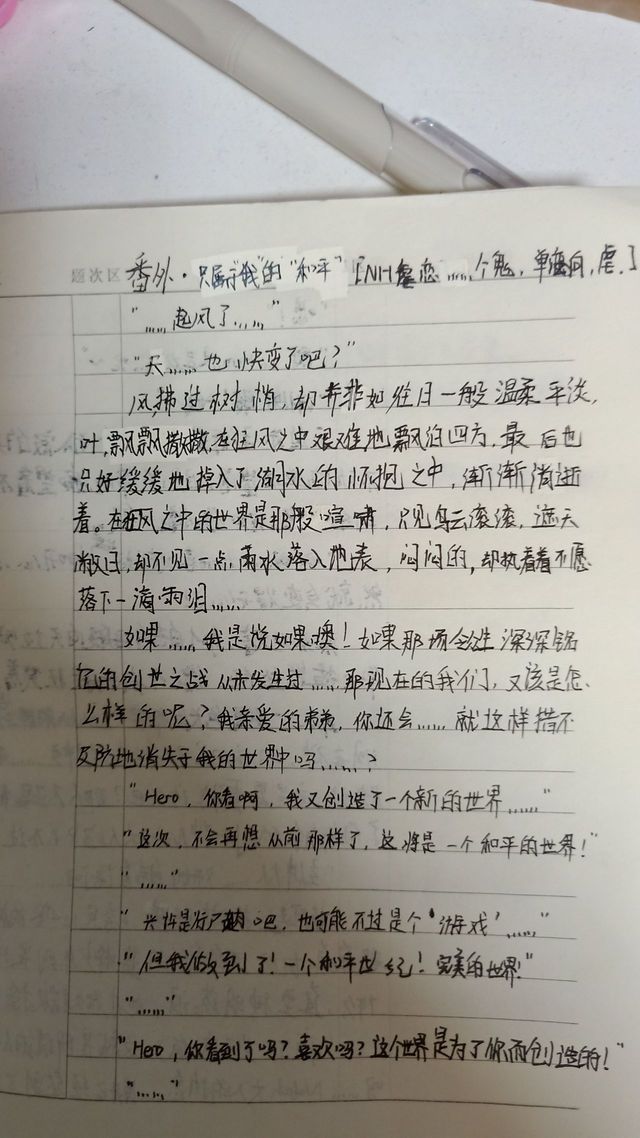 题次区
番外·只属于"我"的"和平"[NH虐恋……个鬼,单箭向,虐.]
"……起风了……"
"天……也快变了吧?"
风拂过树梢,却并非如往日一般温柔平淡,
叶,飘飘撒撒,在狂风之中艰难地飘泊四方,最后也
只好缓缓地掉入了湖水的怀抱之中,渐渐消逝
着。在狂风之中的世界是那般喧啸,只见乌云滚滚,遮天
蔽日,却不见一点雨水落入地表,闷闷的,却执着着不愿
落下一滴雨泪……
如果……我是说如果噢!如果那场令众生深深铭
记的创世之战从未发生过……那现在的我们,又该是怎
么样的呢?我亲爱的弟弟,你还会……就这样措不
及防地消失于我的世界中吗……?
"Hero,你看啊,我又创造了一个新的世界……"
"这次,不会再想从前那样了,这将是一个和平的世界!"
"……"
"兴许是行尸走肉吧,也可能不过是个'游戏'……"
"但我做到了!一个和平世纪!完美的世界!"
"……"
"Hero,你看到了吗?喜欢吗?这个世界是为了你而创造的!"
"……"